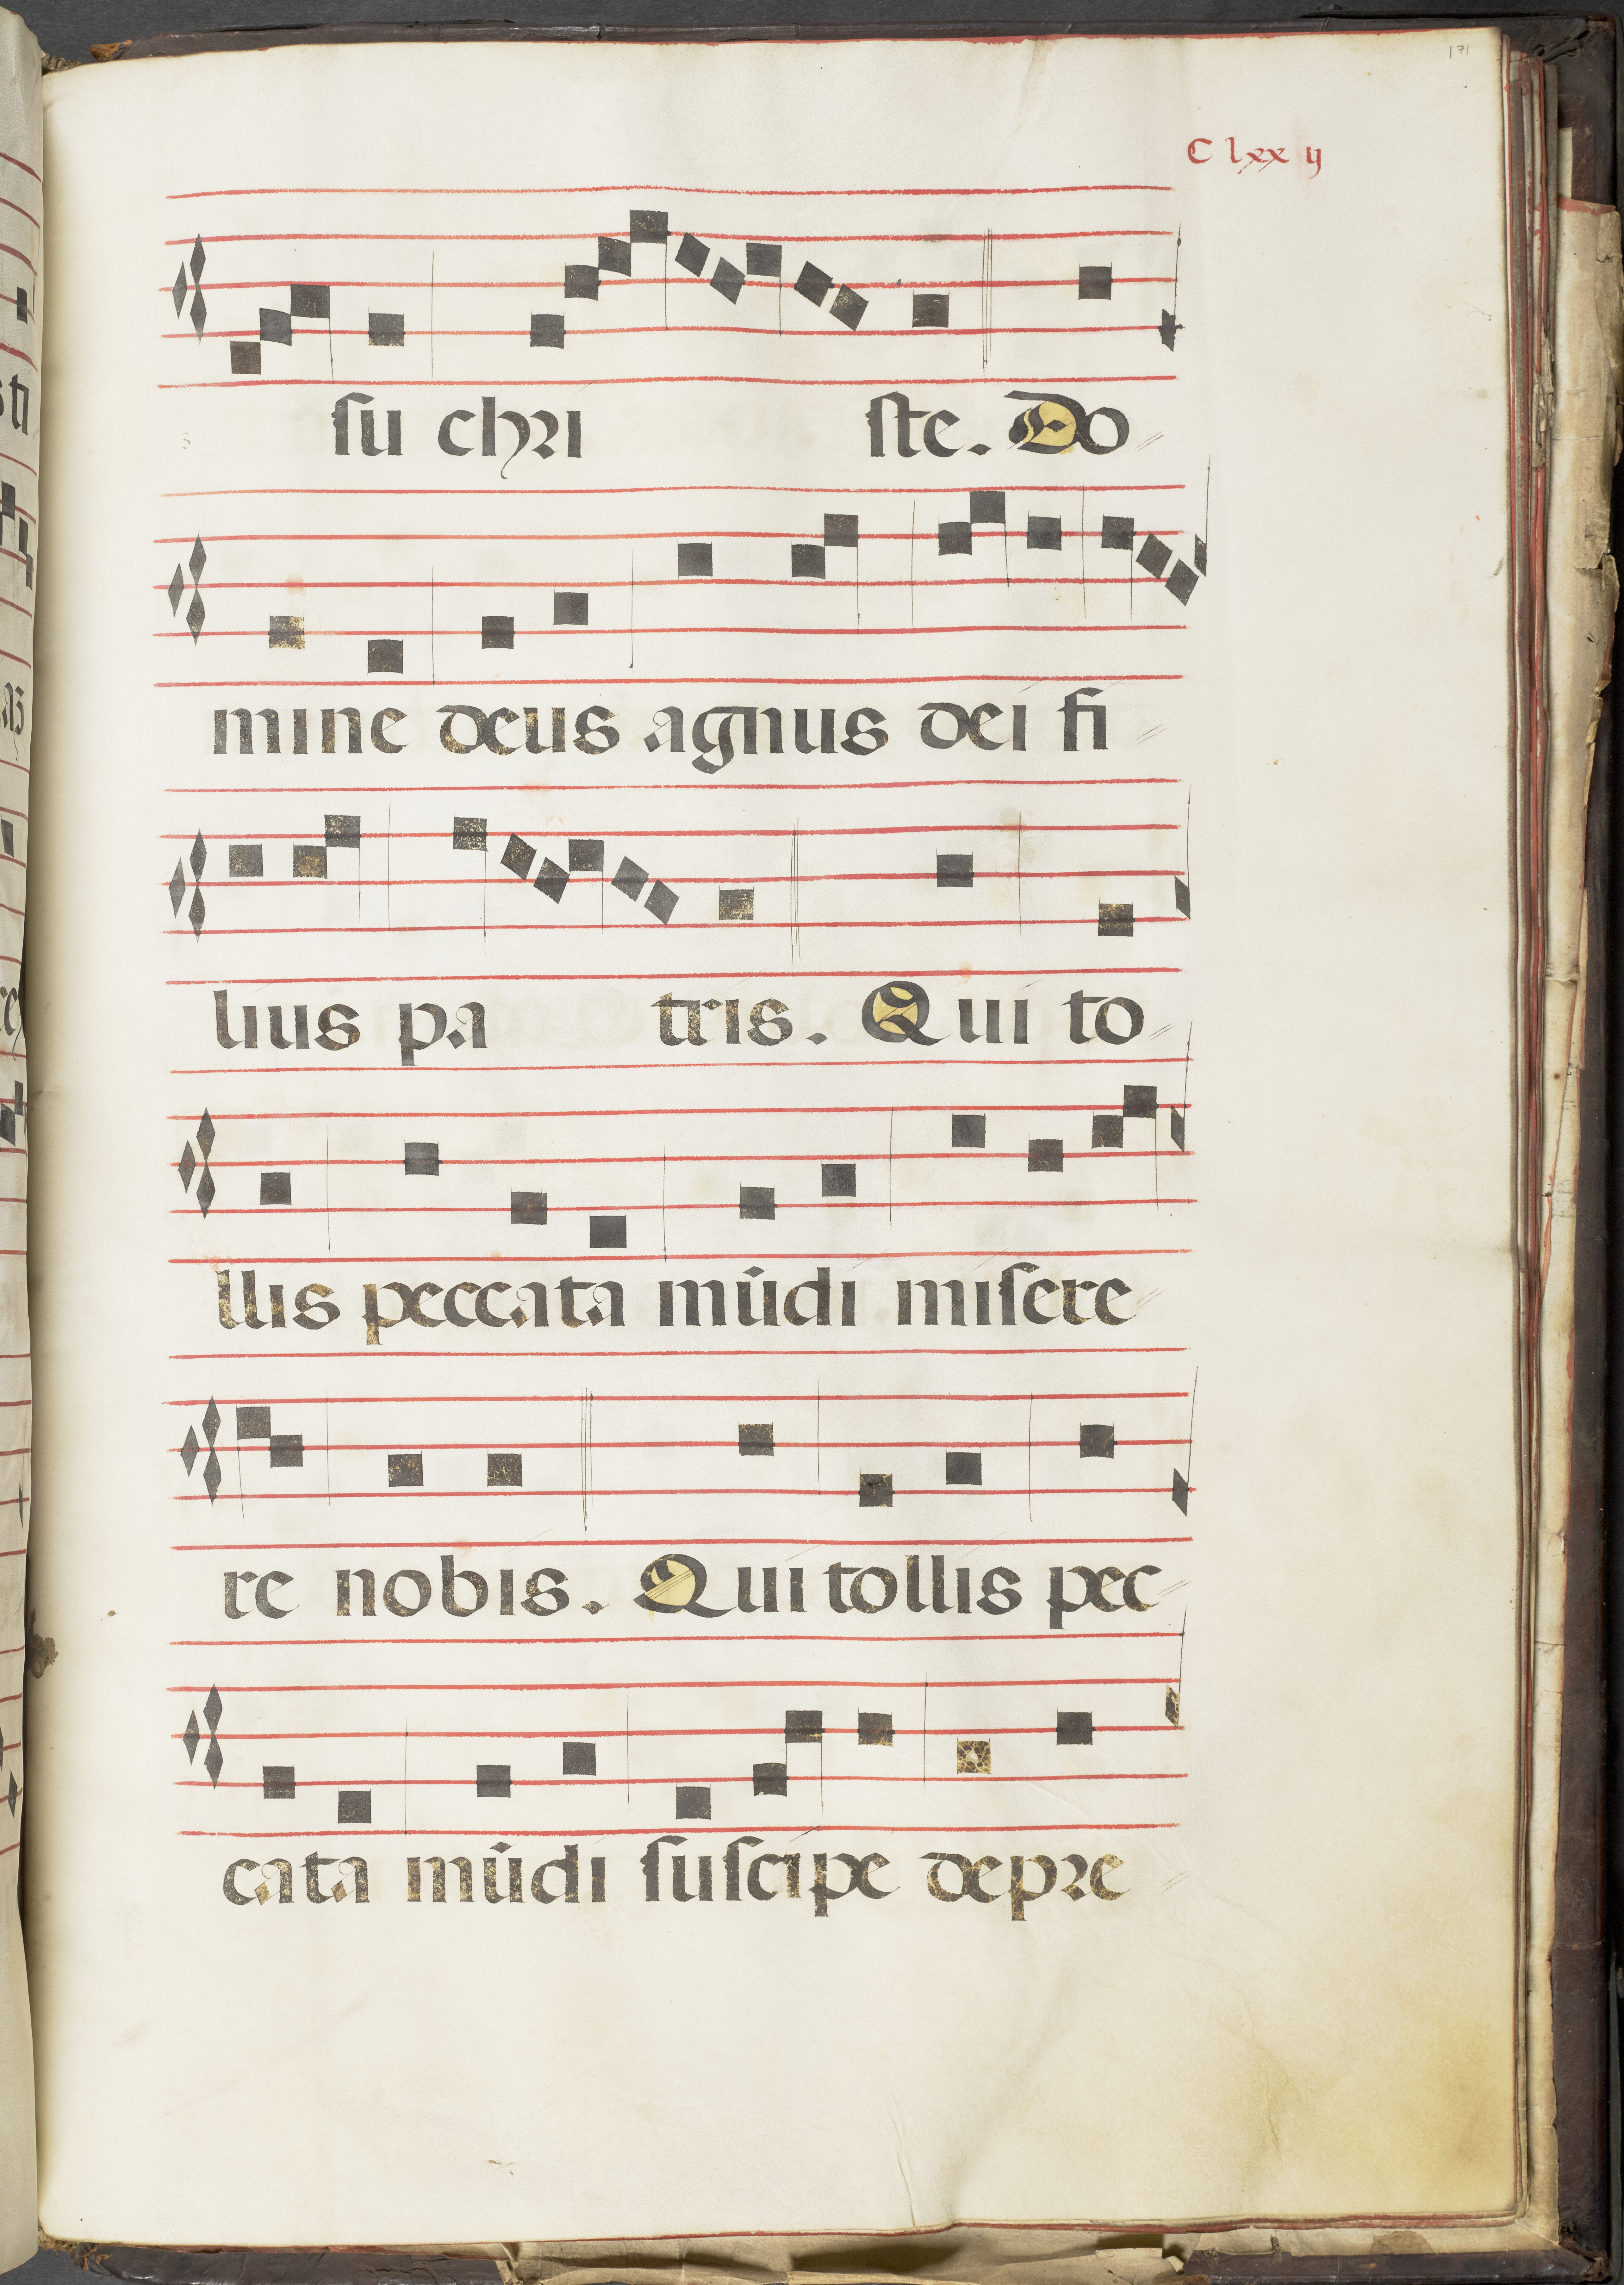 171
C lxx ij
ſu chri ſte. Do
mine deus agnus dei fi
lius pa tris. Qui to
llis peccata mūdi miſere
re nobis. Qui tollis pec
cata mūdi ſuſcipe depre